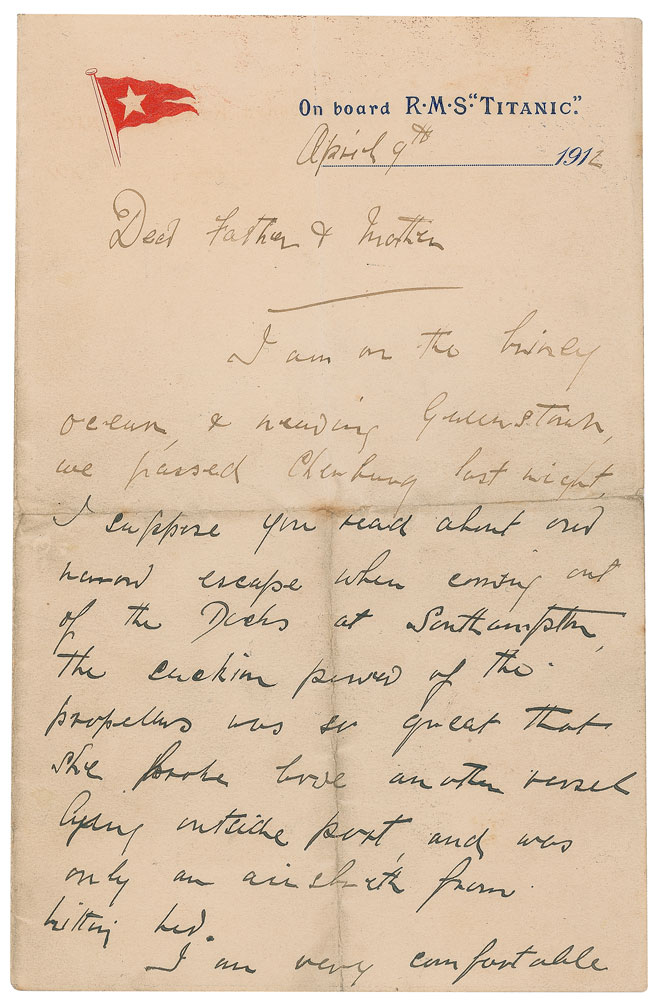 On board R·M·S·"TITANIC."
April 9th 1912
Dear Father & Mother
I am on the briney
ocean, & nearing Queenstown,
we passed Cherburg last night,
I suppose you read about our
narrow escape when coming out
of the Docks at Southampton,
the suckion power of the
propellers was so great that
she broke love another vessel
lying outside port, and was
only an airsbreth from
hitting her.
I am very comfortable